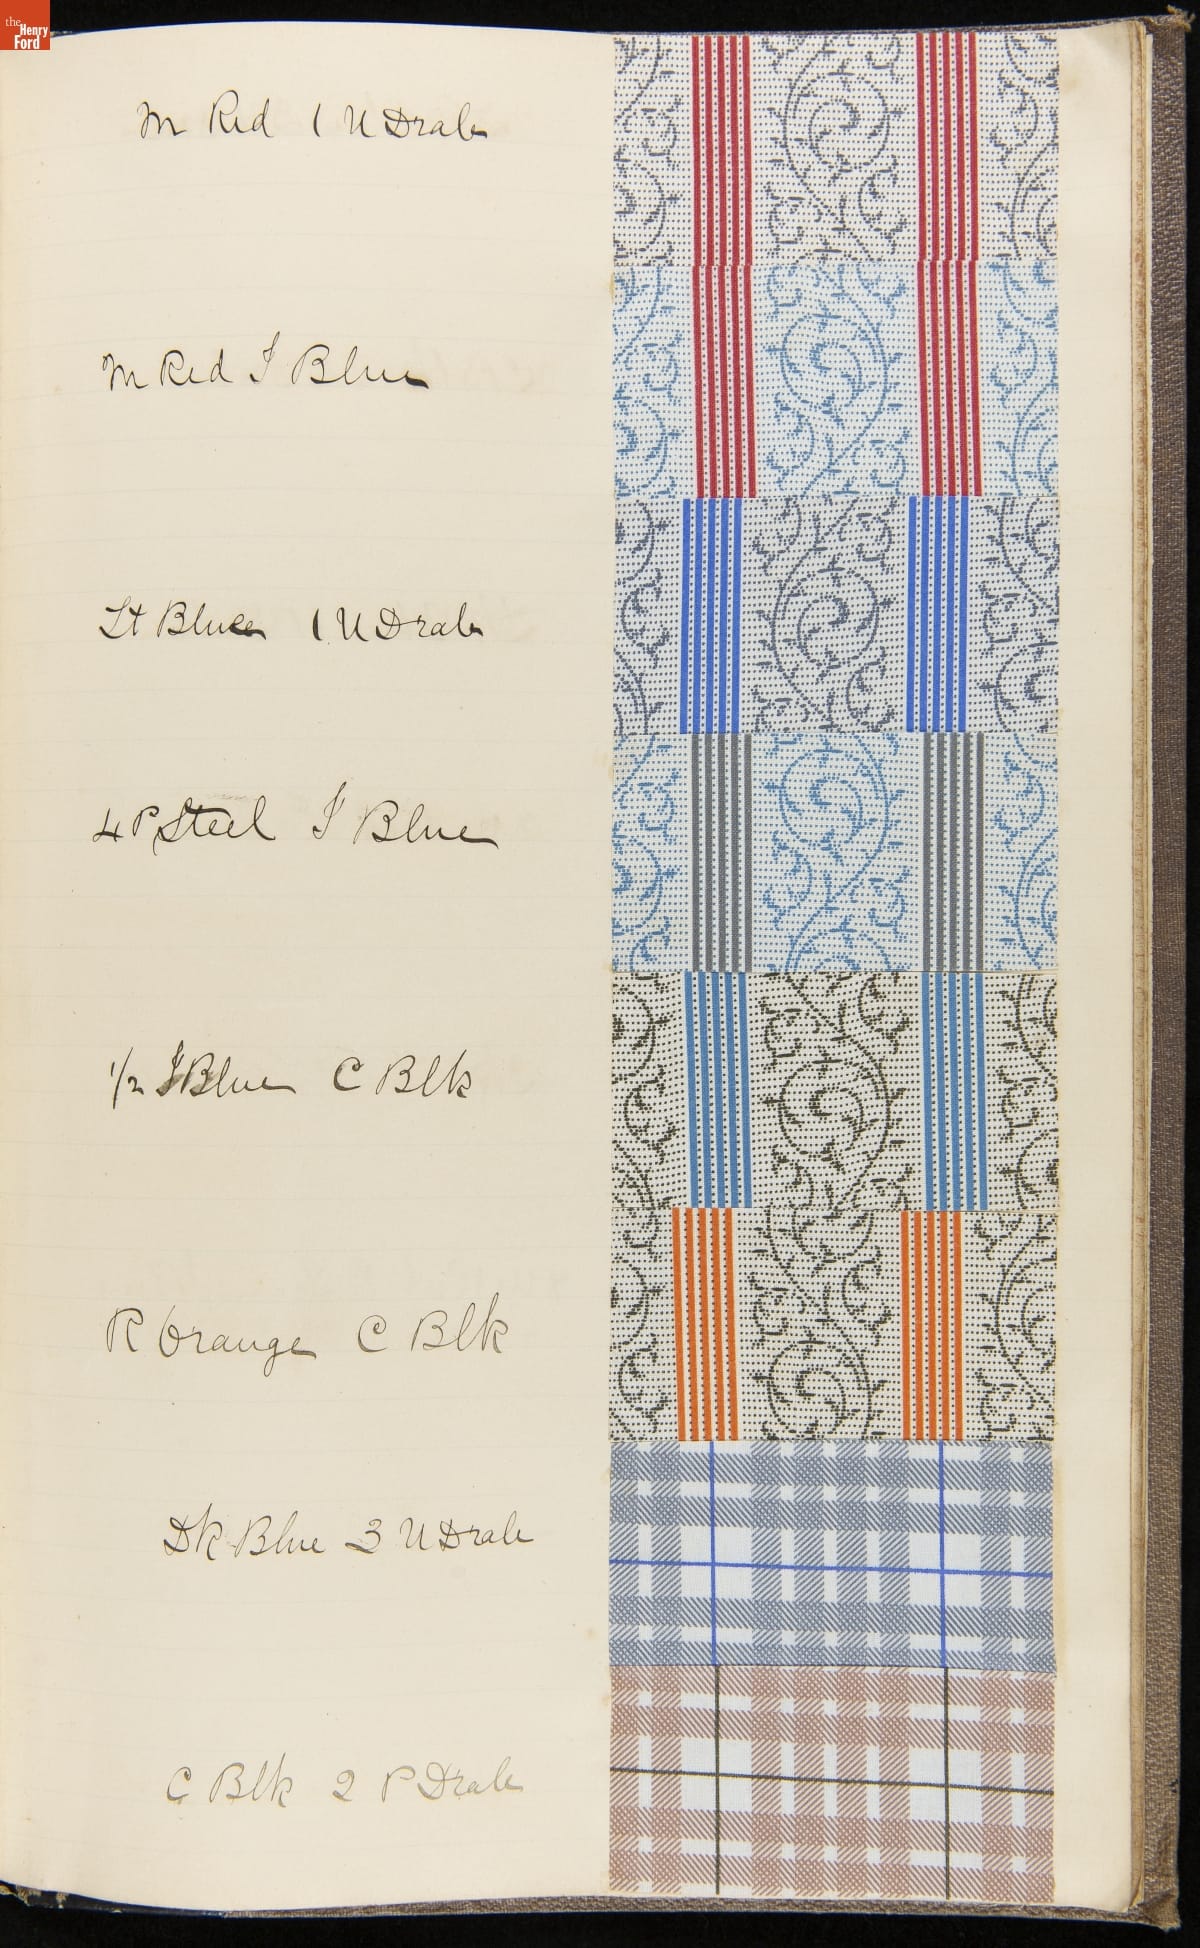 the
Henry
Ford
M Red 1 U Drab
M Red I Blue
Lt Blue 1 U Drab
4 P Steel I Blue
1/2 I Blue C Blk
R Orange C Blk
Dk Blue 3 U Drab
C Blk 2 P Drab